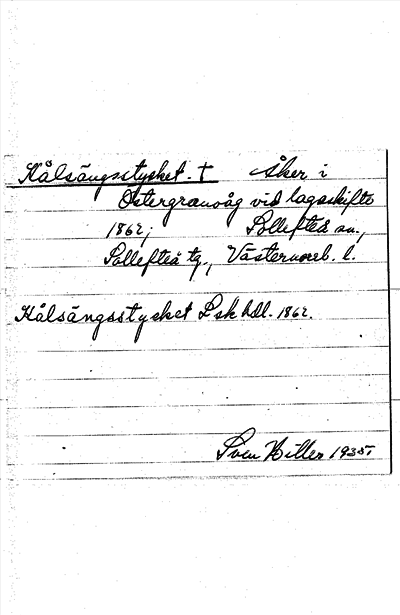 Kålsängsstycket. † Åker i
Östergranvåg vid lagaskifte
1862, Sollefteå sn.,
Sollefteå tg., Västernorrl. l.
Kålsängsstycket Lskhdl. 1862.
Sven Hillen 1935